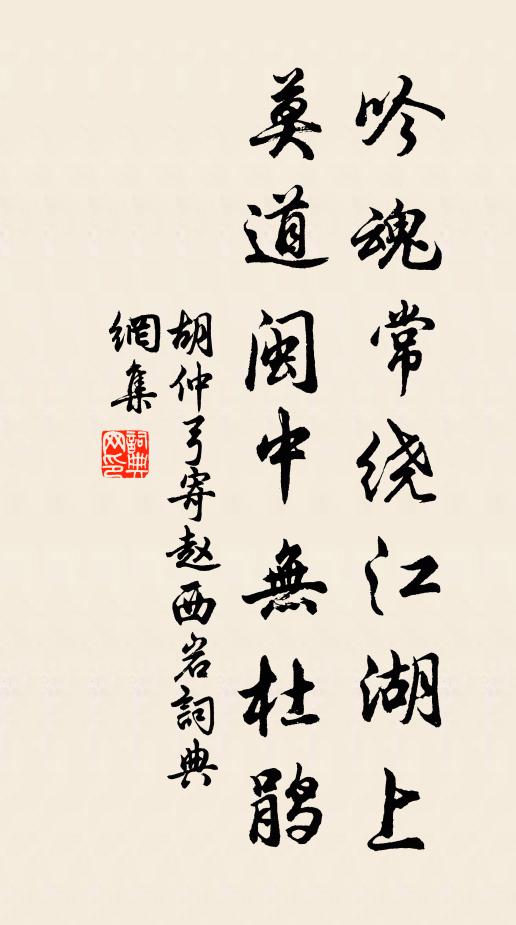 吟魂常绕江湖上
莫道闽中無杜鹃
胡仲弓寄赵西岩詞典
網集
詞典网印